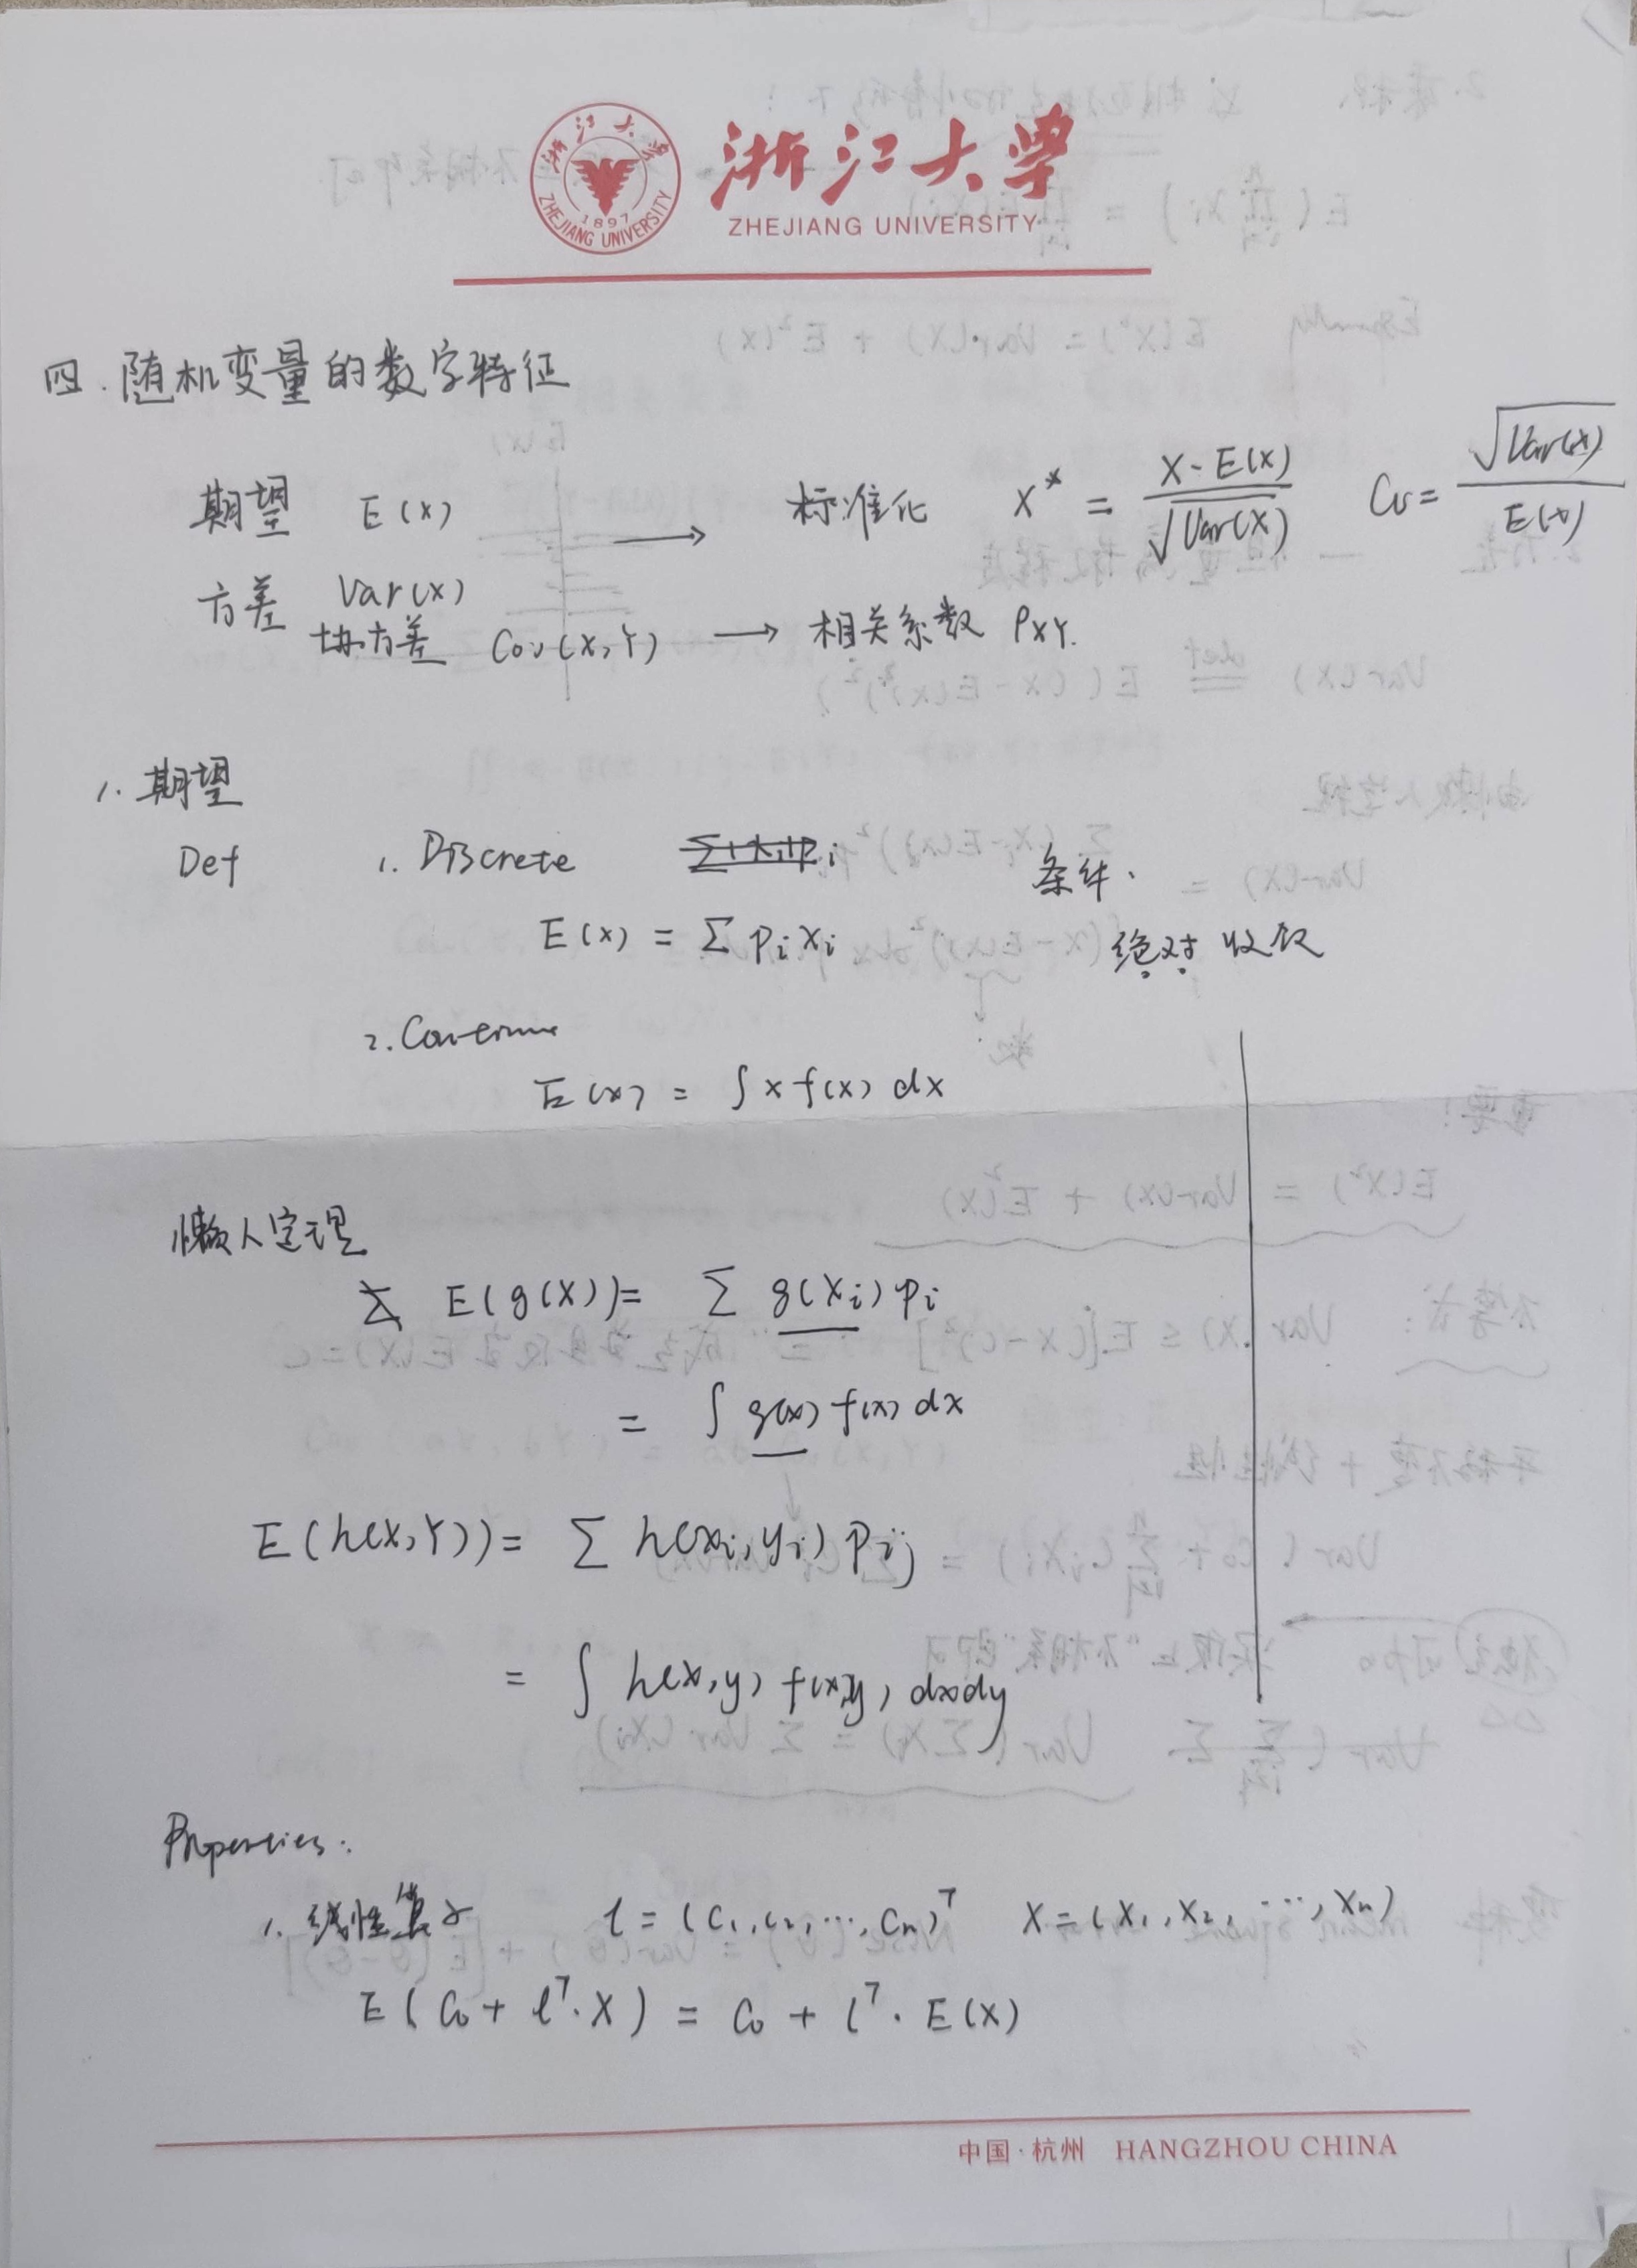 浙江大学
ZHEJIANG UNIVERSITY
浙江大学
1897
ZHEJIANG UNIVERSITY
四. 随机变量的数字特征
期望 E(X) → 标准化 X* = (X - E(X)) / √Var(X) Cv = √Var(X) / E(X)
方差 Var(X)
协方差 Cov(X,Y) → 相关系数 ρXY.
1. 期望
Def 1. Discrete 条件.
E(X) = Σ pi xi 绝对收敛
2.
E(X) = ∫ x f(x) dx
懒人定理
E(g(X)) = Σ g(xi) pi
= ∫ g(x) f(x) dx
E(h(X,Y)) = Σ h(xi, yi) pij
= ∫ h(x,y) f(x,y) dxdy
Properties:
1. 线性算子 l = (c1, c2, ⋯, cn)ᵀ X = (X1, X2, ⋯, Xn)
E(c0 + lᵀ·X) = c0 + lᵀ·E(X)
中国·杭州 HANGZHOU CHINA